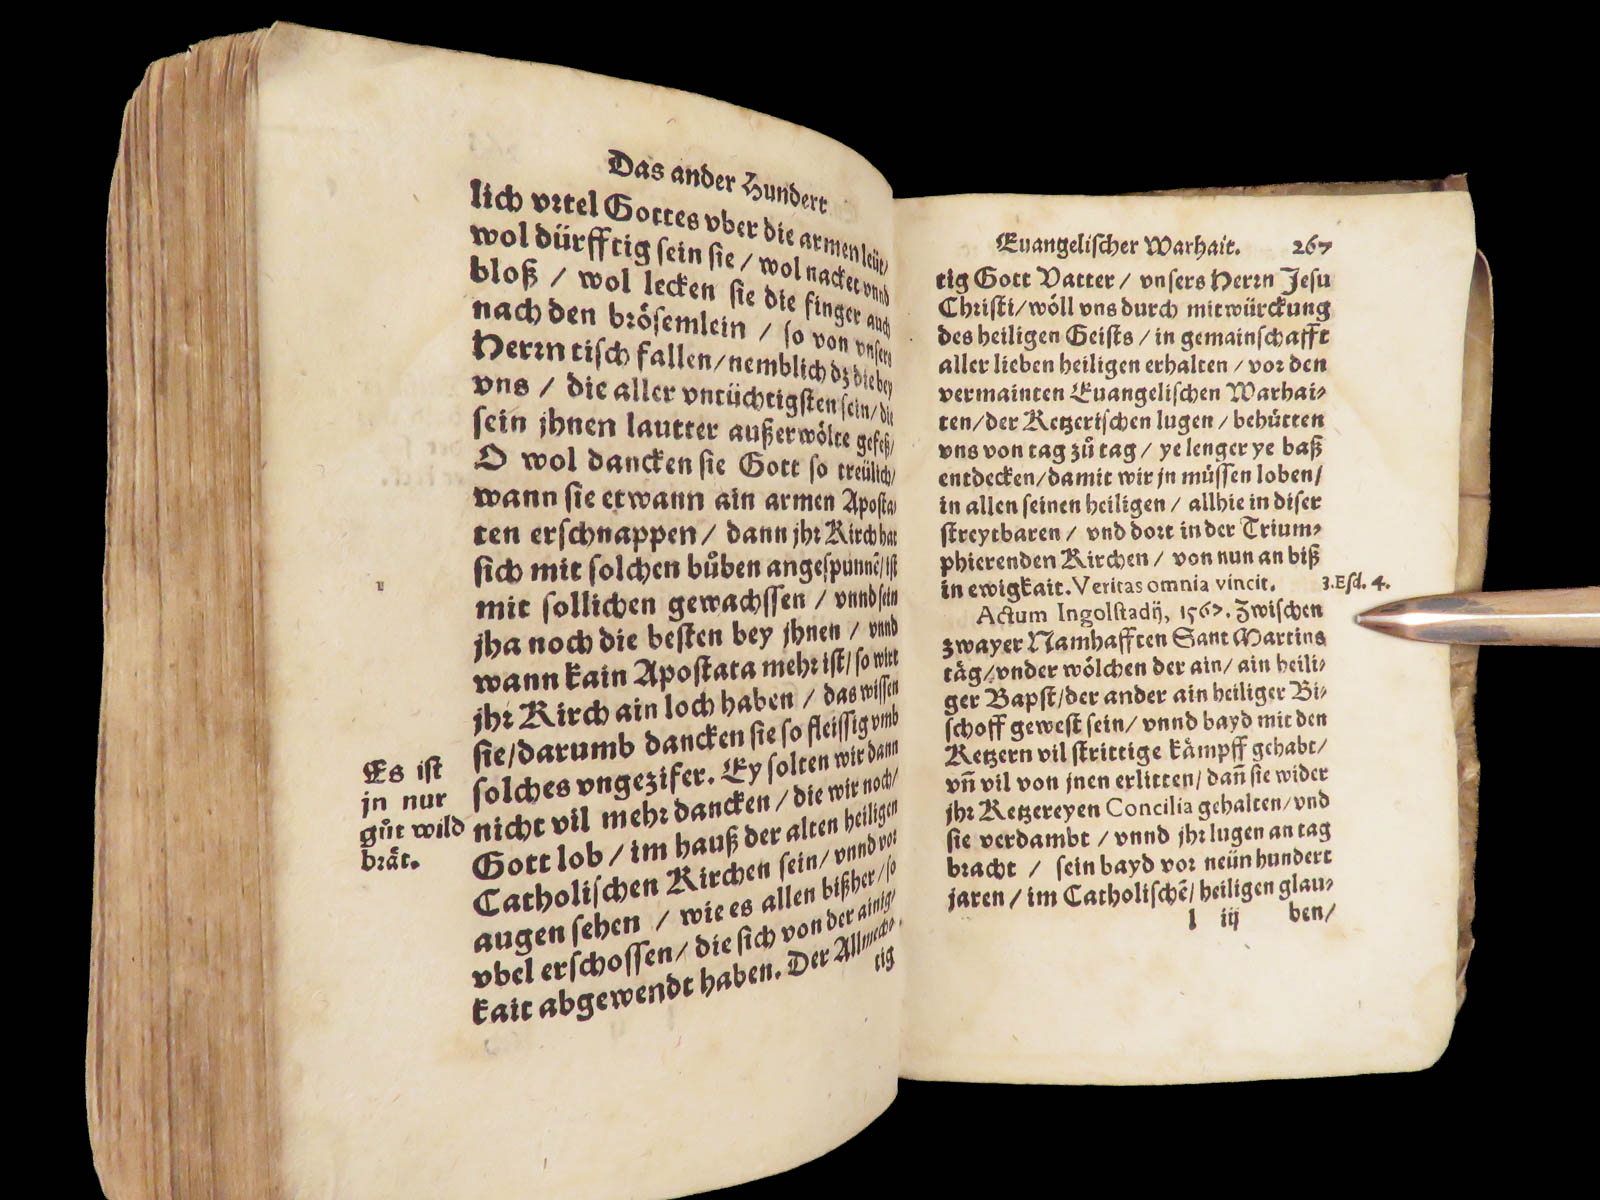 Das ander Hundert
lich vrtel Gottes vber die armen leüt/
wol dürfftig sein sie / wol nacket vnnd
bloß / wol lecken sie die finger auch
nach den brösemlein / so von vnsers
Herrn tisch fallen/nemblich dz die bey
vns / die aller vntüchtigsten sein/die
sein jhnen lautter außerwölte gefeß/
O wol dancken sie Gott so treülich/
wann sie etwann ain armen Aposta⸗
ten erschnappen / dann jhr Kirch hat
sich mit solchen bůben angespunnē/ist
mit sollichen gewachssen / vnnd sein
jha noch die besten bey jhnen / vnnd
wann kain Apostata mehr ist/so wirt
jhr Kirch ain loch haben / das wissen
sie/darumb dancken sie so fleissig vmb
solches vngezifer. Ey solten wir dann
nicht vil mehr dancken / die wir noch/
Gott lob / im hauß der alten heiligen
Catholischen Kirchen sein/ vnnd vor
augen sehen / wie es allen bißher/so
vbel erschossen/ die sich von der ainig⸗
kait abgewendt haben. Der Allmech⸗
tig
Es ist
jn nur
gůt wild
brät.
Euangelischer Warhait. 267
tig Gott Vatter / vnsers Herrn Jesu
Christi/wöll vns durch mitwürckung
des heiligen Geists / in gemainschafft
aller lieben heiligen erhalten / vor den
vermainten Euangelischen Warhai⸗
ten/der Ketzerischen lugen / behütten
vns von tag zů tag / ye lenger ye baß
entdecken/damit wir jn müssen loben/
in allen seinen heiligen / allhie in diser
streytbaren / vnd dort in der Trium⸗
phierenden Kirchen / von nun an biß
in ewigkait. Veritas omnia vincit.
3.Esd. 4.
Actum Ingolstadij, 1567. Zwischen
zwayer Namhafften Sant Martins
täg/vnder wölchen der ain/ ain heili⸗
ger Bapst/der ander ain heiliger Bi⸗
schoff gewest sein/ vnnd bayd mit den
Ketzern vil strittige kämpff gehabt/
vñ vil von jnen erlitten/ dañ sie wider
jhr Ketzereyen Concilia gehalten/vnd
sie verdambt / vnnd jhr lugen an tag
bracht / sein bayd vor neün hundert
jaren / im Catholischē/ heiligen glau⸗
l iij ben/